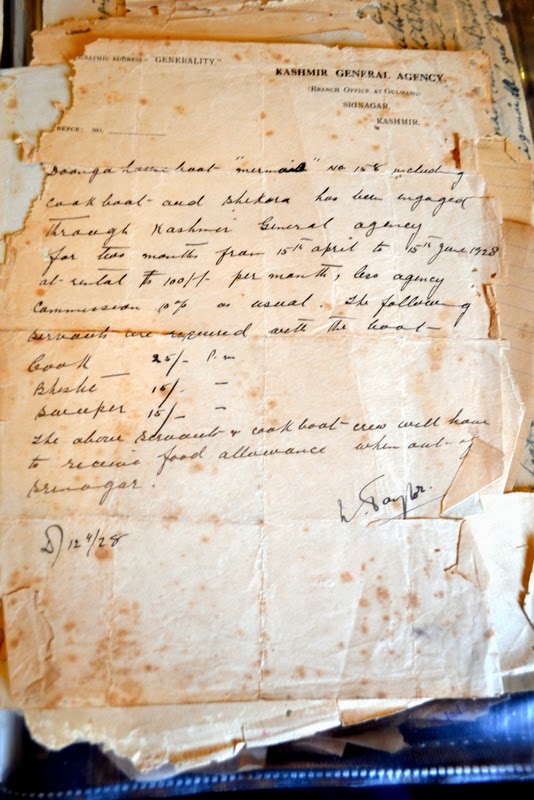 GRAPHIC ADDRESS "GENERALITY."
KASHMIR GENERAL AGENCY,
(BRANCH OFFICE AT GULMARG)
SRINAGAR,
KASHMIR.
REFCE: NO.
Doonga house boat "mermaid" No 158 including
cookboat and Shikara has been engaged
through Kashmir General agency
for two months from 15th april to 15th June 1928
at rental Rs 100/- per month, less agency
Commission 10% as usual. The following
servants are required with the boat
Cook 25/- P.m
Bhisti 15/- "
Sweeper 15/- "
The above servants & cookboat crew will have
to receive food allowance when out of
Srinagar.
W. Taylor.
D/ 12 4/28